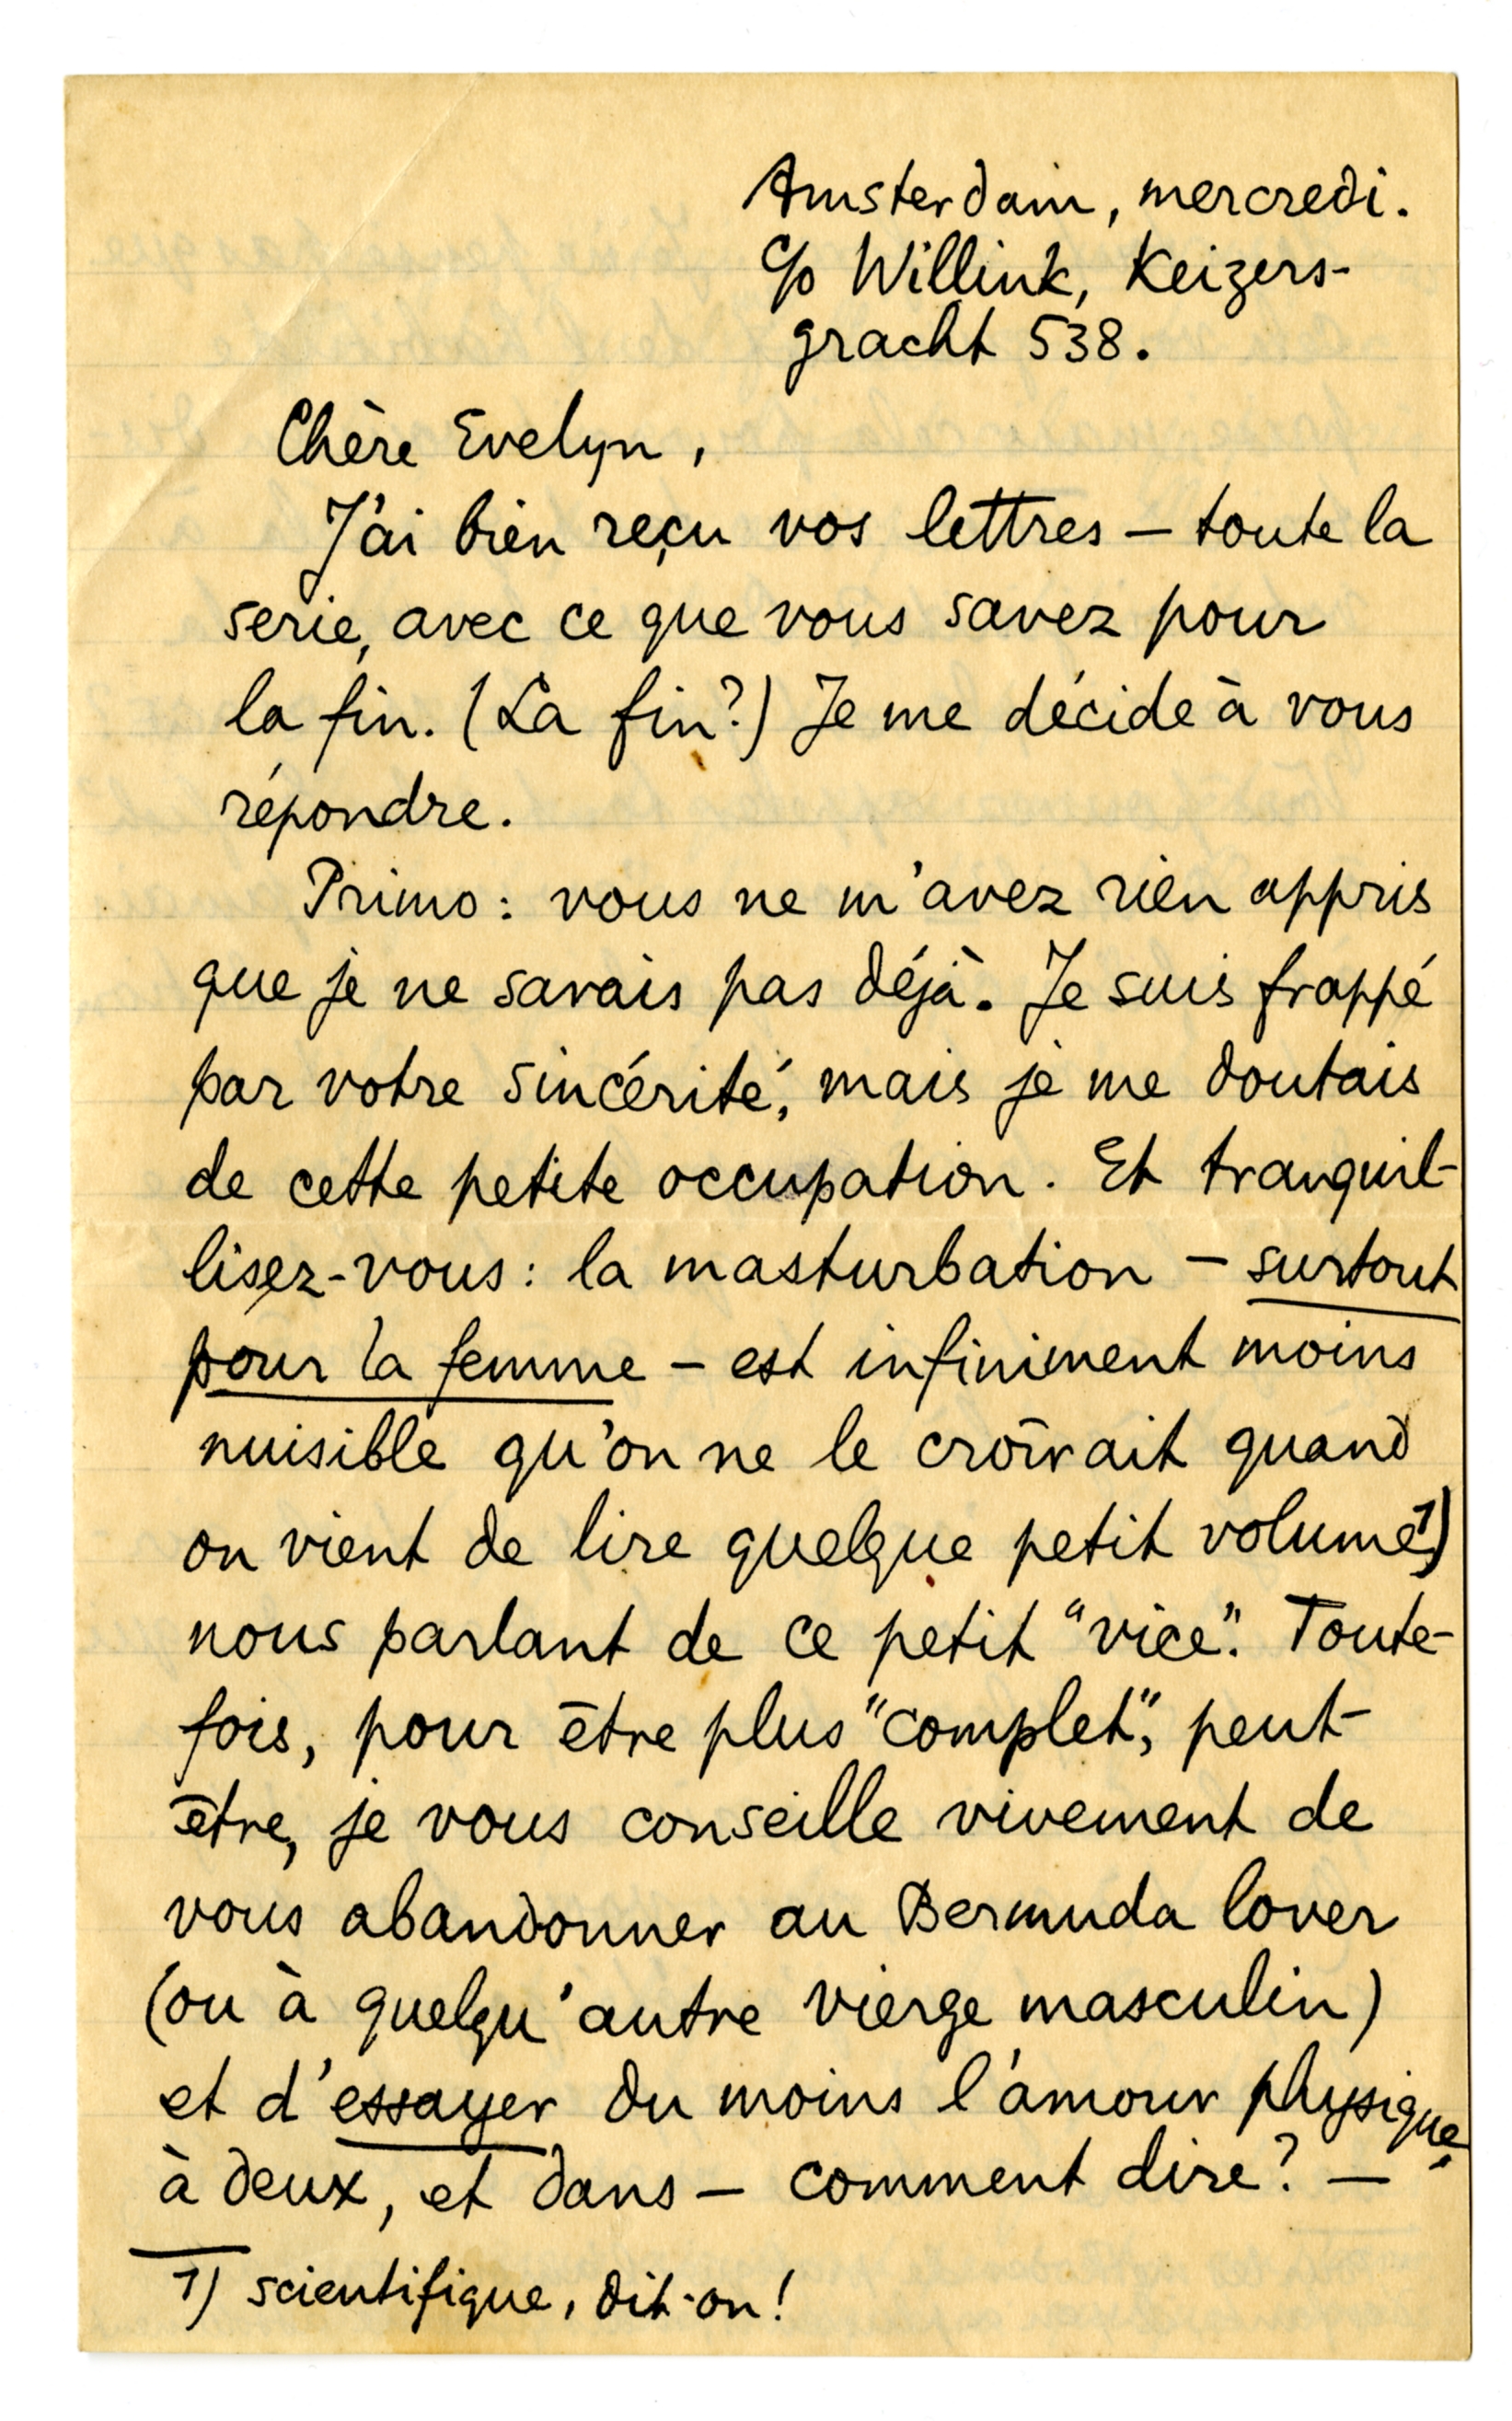 Amsterdam, mercredi.
c/o Willink, Keizers-
gracht 538.
Chère Evelyn,
J'ai bien reçu vos lettres – toute la
serie, avec ce que vous savez pour
la fin. (La fin?) Je me décide à vous
répondre.
Primo: vous ne m'avez rien appris
que je ne savais pas déjà. Je suis frappé
par votre sincérité, mais je me doutais
de cette petite occupation. Et tranquil-
lisez-vous: la masturbation – surtout
pour la femme – est infiniment moins
nuisible qu'on ne le croîrait quand
on vient de lire quelque petit volume 1)
nous parlant de ce petit "vice". Toute-
fois, pour être plus "complet", peut-
être, je vous conseille vivement de
vous abandonner au Bermuda lover
(ou à quelqu'autre vierge masculin)
et d'essayer du moins l'amour physique,
à deux, et dans – comment dire? –
1) scientifique, dit-on!